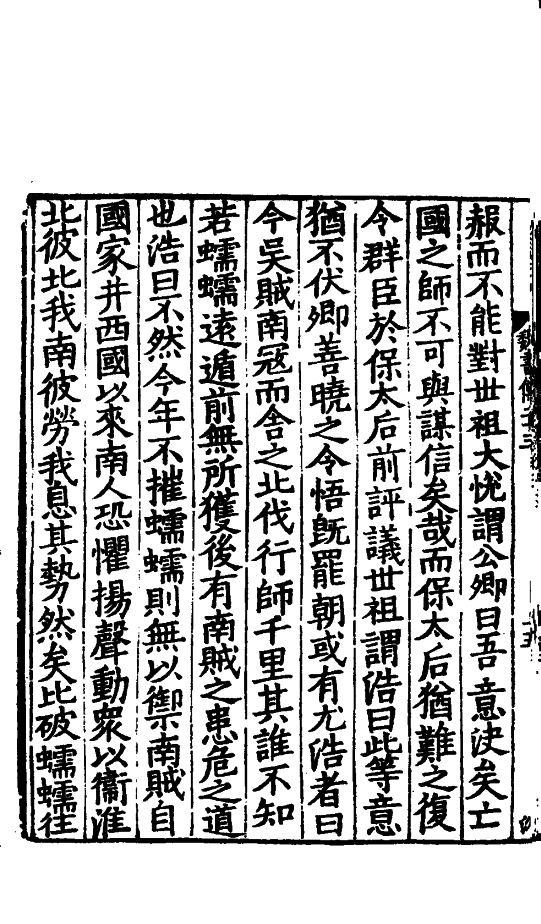 赧而不能對世祖大悅謂公卿曰吾意決矣亡
國之師不可與謀信矣哉而保太后猶難之復
令群臣於保太后前評議世祖謂浩曰此等意
猶不伏卿善曉之令悟旣罷朝或有尤浩者曰
今吳賊南寇而舎之北伐行師千里其誰不知
若蠕蠕逺遁前無所獲後有南賊之患危之道
也浩曰不然今年不摧蠕蠕則無以禦南賊自
國家并西國以來南人恐懼揚聲動衆以衞淮
北彼北我南彼勞我息其勢然矣比破蠕蠕徃